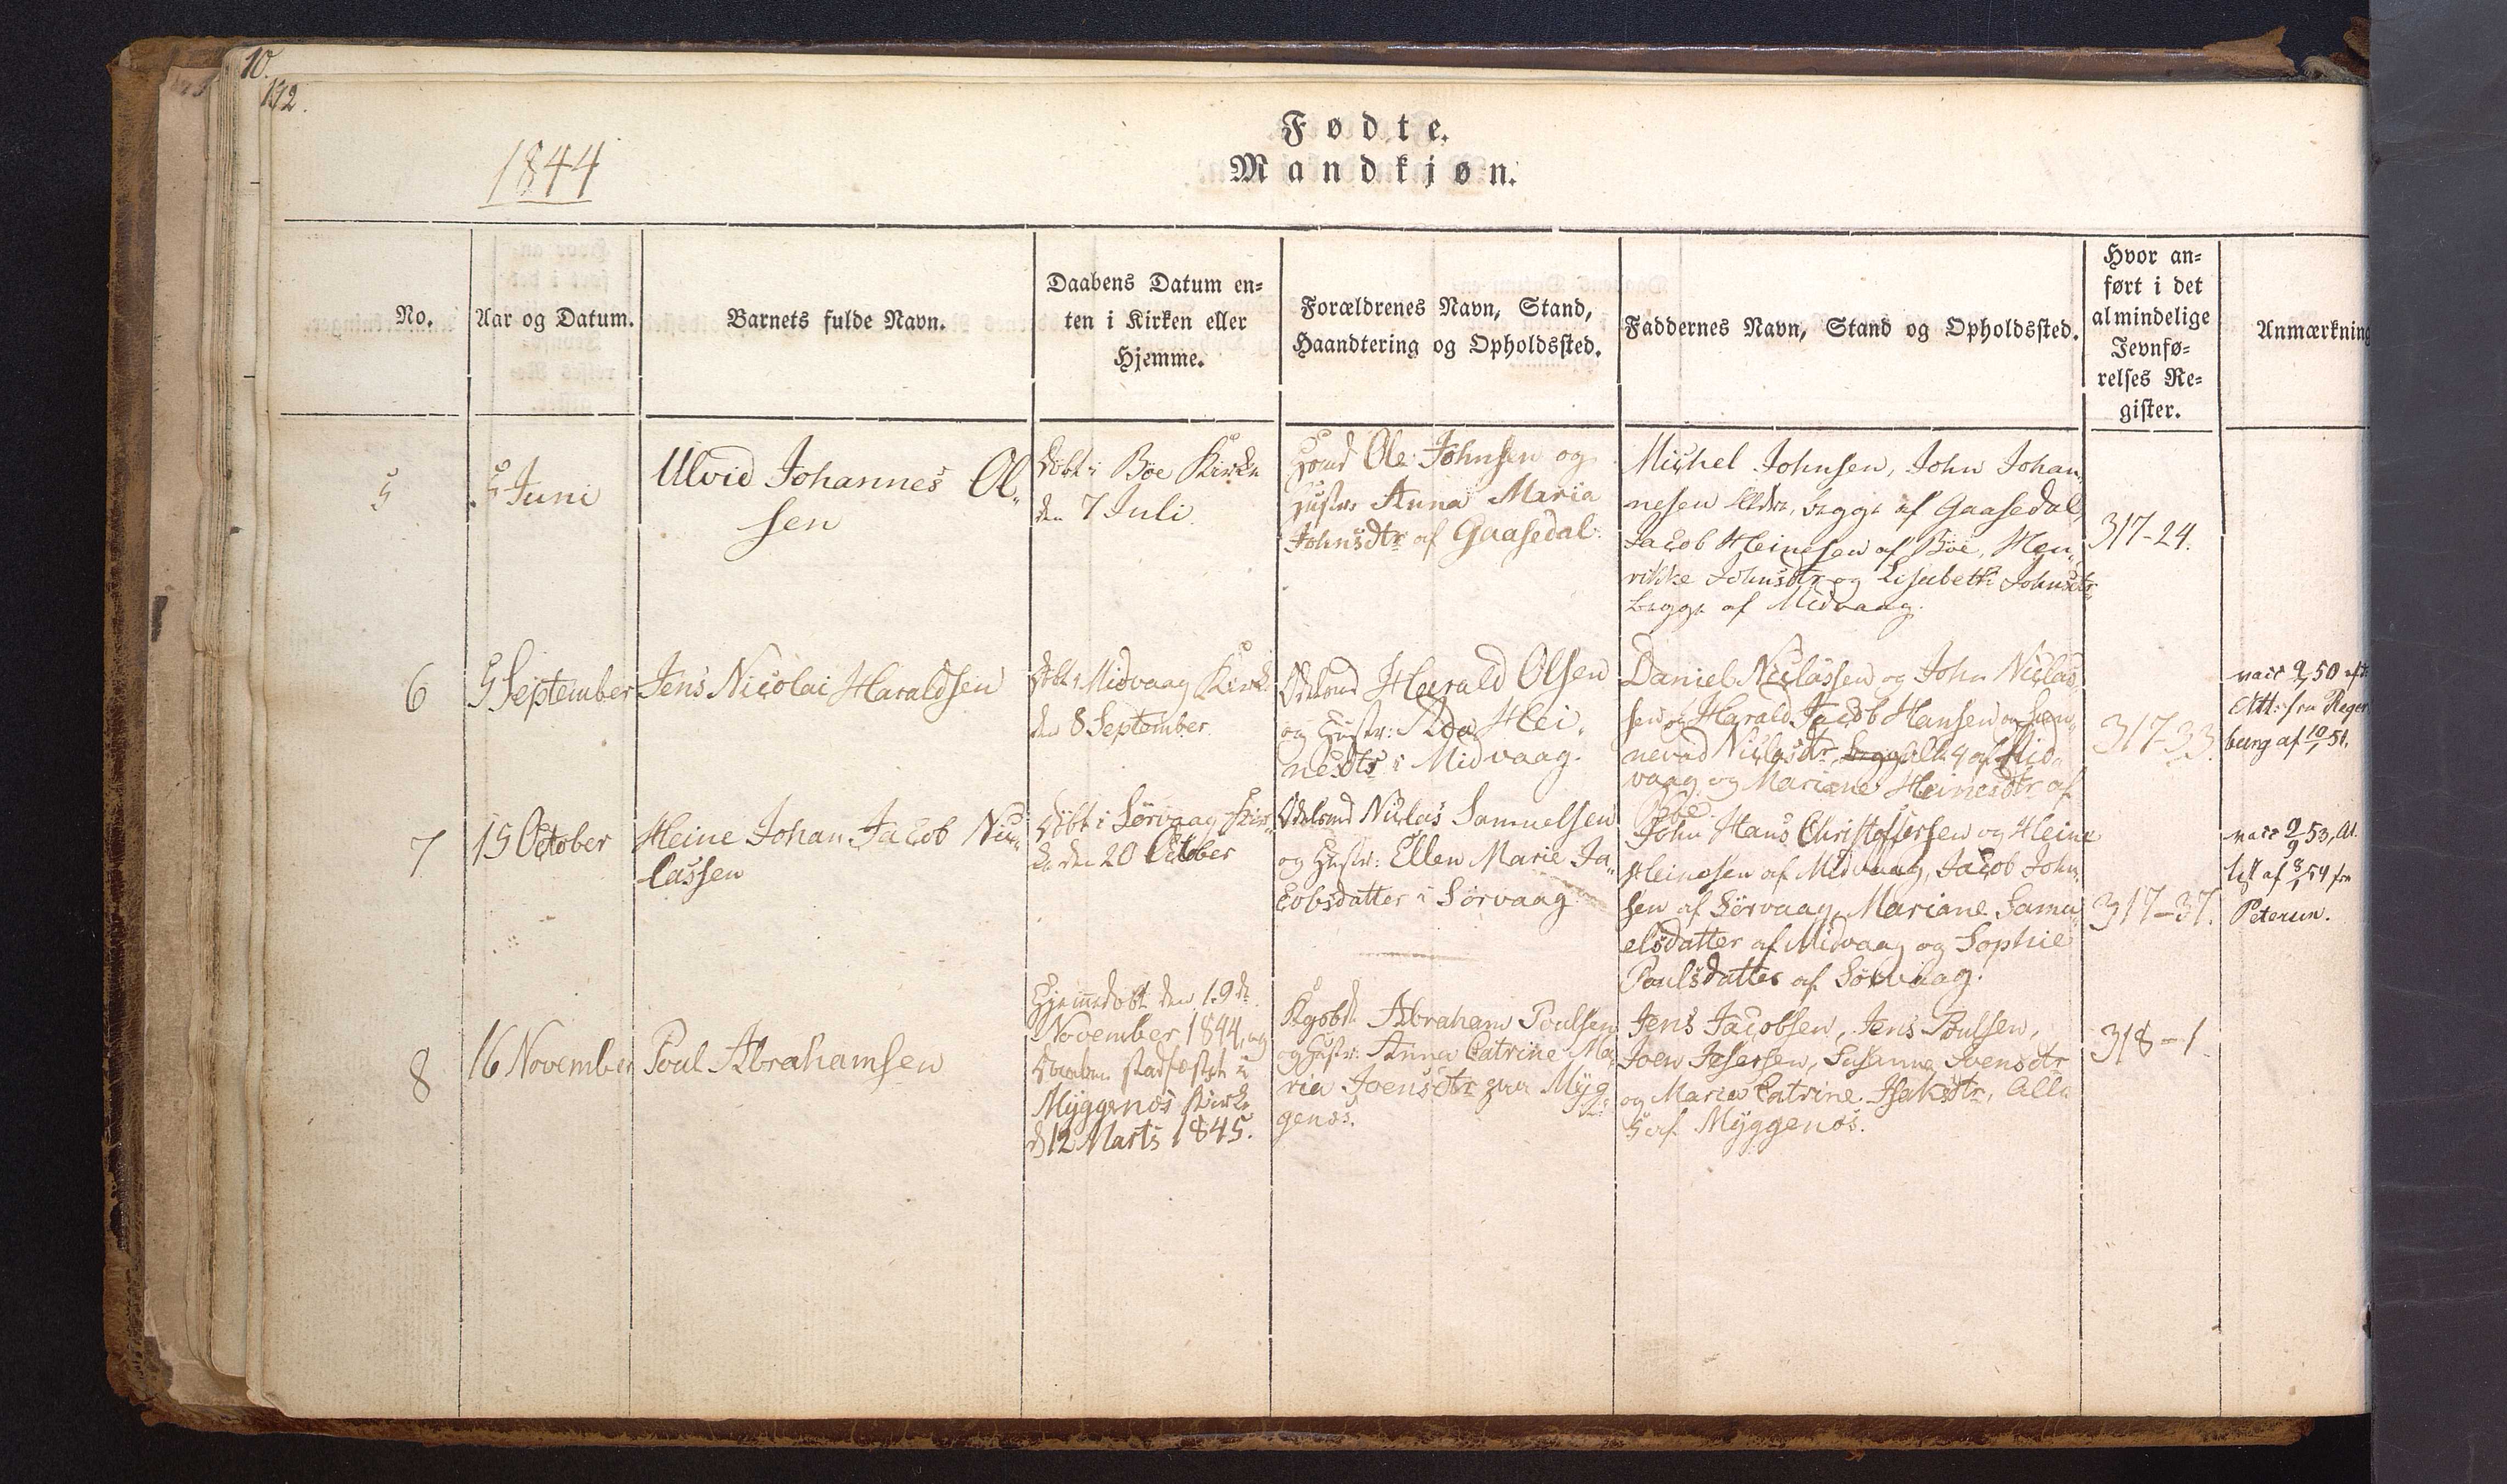 10.
172.
1844
Fødte.
Mandkjøn.
No.
Aar og Datum.
Barnets fulde Navn.
Daabens Datum en-
ten i Kirken eller
Hjemme.
Forældrenes Navn, Stand,
Haandtering og Opholdssted.
Faddernes Navn, Stand og Opholdssted.
Hvor an-
ført i det
almindelige
Jevnfø-
relses Re-
gister.
Anmærkning
5
5 Juni
Ulvid Johannes Ol-
sen
Döbt i Böe Kirke
den 7 Juli.
Ole Johnsen og
Hustr: Anna Maria
Johnsdtr af Gaasedal.
Michel Johnsen, John Johan-
nesen Ældre, begge af Gaasedal,
Jacob Heinesen af Böe, Hen-
rikke Johnsdtr og Lisabeth Johnsdtr
begge af Midvaag.
317-24.
6
5 September
Jens Nicolai Haraldsen
Döbt i Midvaag Kirke
den 8 September.
Odelsmd Harald Olsen
og Hustr: Ada Hei-
nesdtr i Midvaag.
Daniel Niclassen og John Niclas-
sen og Harald Jacob Hansen og Sun-
nevad Niclasdtr, begge alle 4 af Mid-
vaag, og Mariane Heinesdtr af
Böe.
317-33.
vacc 9/7 50 eft
Att: fra Reger
burg af 10/7 51.
7
15 October
Heine Johan Jacob Nic-
lassen
Döbt i Sörvaag Kir-
ke den 20 October
Odelsmd Niclas Samuelsen
og Hustr: Ellen Marie Ja-
cobsdatter i Sörvaag
John Hans Christoffersen og Heine
Heinesen af Midvaag, Jacob John-
sen af Sörvaag, Mariane Samu-
elsdatter af Midvaag og Sophie
Poulsdatter af Sörvaag.
317-37.
vacc 2/9 53, At-
test af 8/1 54 fra
Petersen.
8
16 November
Poul Abrahamsen
Hjemmedöbt den 19de
November 1844, og
Daaben stadfæstet i
Myggenæs Kirke
d 12 Marts 1845.
Kgsbd. Abraham Poulsen
og Hustr: Anna Catrine Ma-
ria Joensdtr paa Myg-
genæs.
Jens Jacobsen, Jens Poulsen,
Joen Jesersen, Susanna Svensdtr
og Maria Catrine Isaksdtr, Alle
5 af Myggenæs.
318-1.